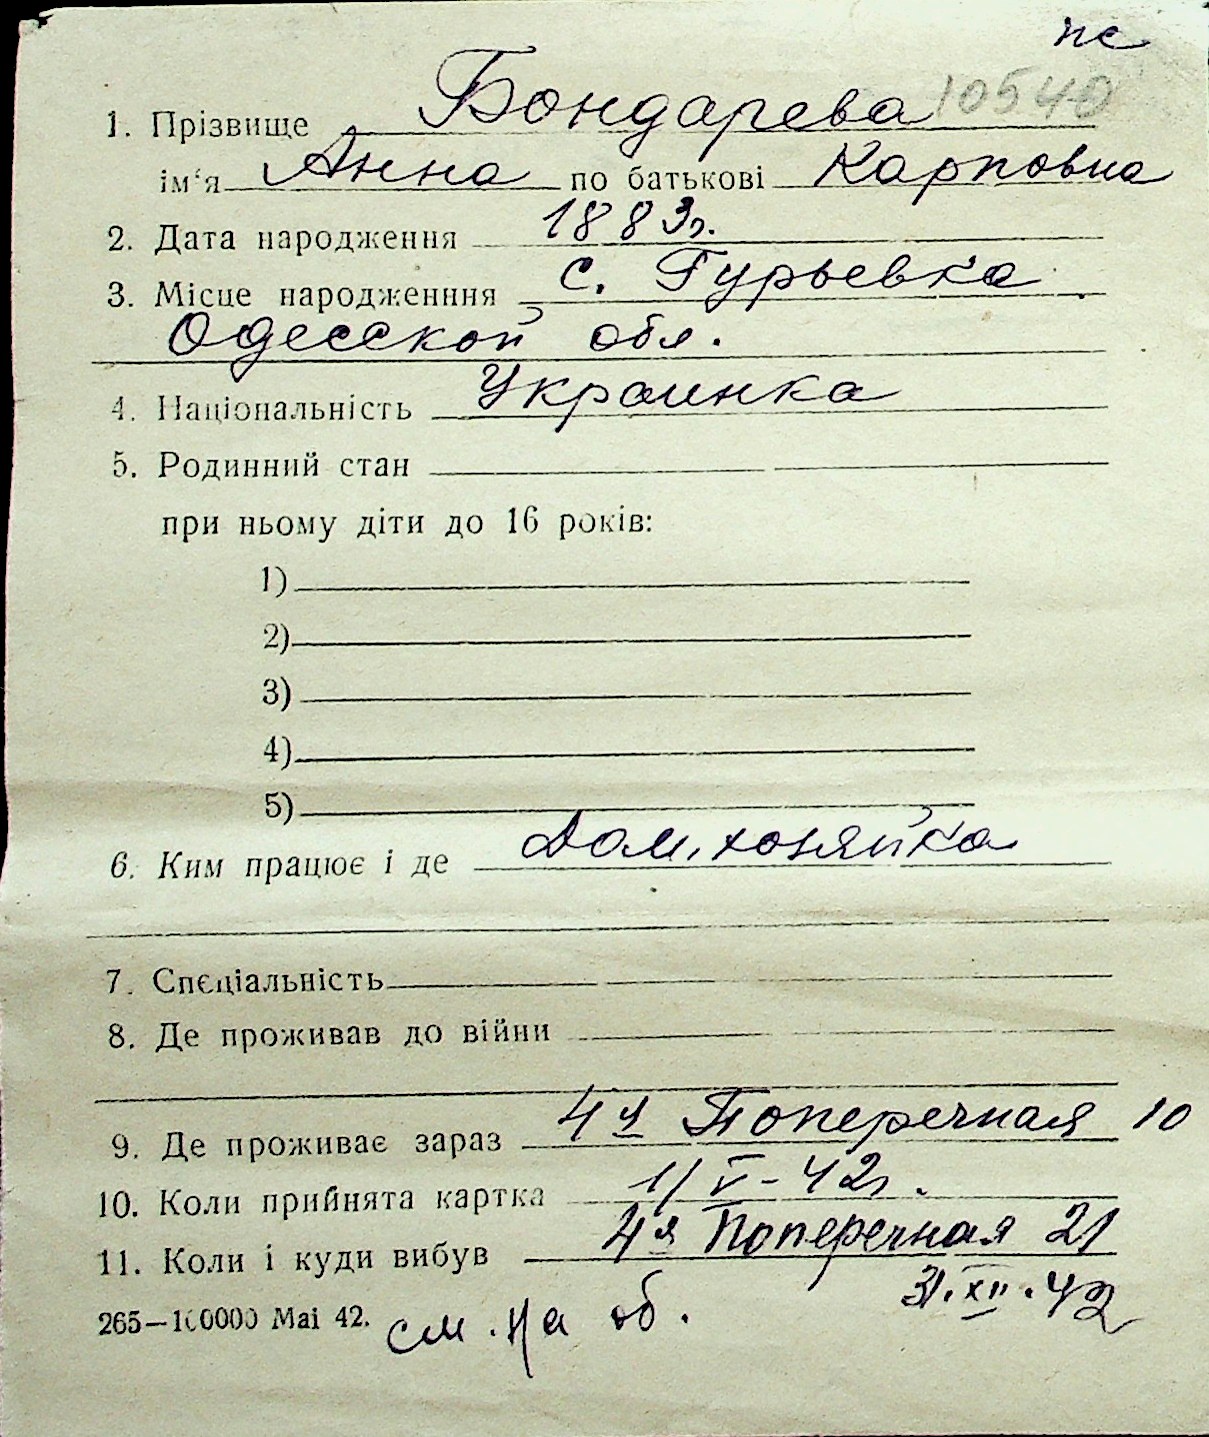 пс
10540
1. Прізвище Бондарева
ім‘я Анна по батькові Карповна
2. Дата народження 1883г.
3. Місце народженння с. Гурьевка
Одесской обл.
4. Національність Украинка
5. Родинний стан
при ньому діти до 16 років:
1)
2)
3)
4)
5)
6. Ким працює і де Дом. хозяйка
7. Спєціальність
8. Де проживав до війни
9. Де проживає зараз 4я Поперечная 10
10. Коли прийнята картка 1/V-42г.
11. Коли і куди вибув 4я Поперечная 21
31.XII.42
265—100000 Маі 42. см. на об.